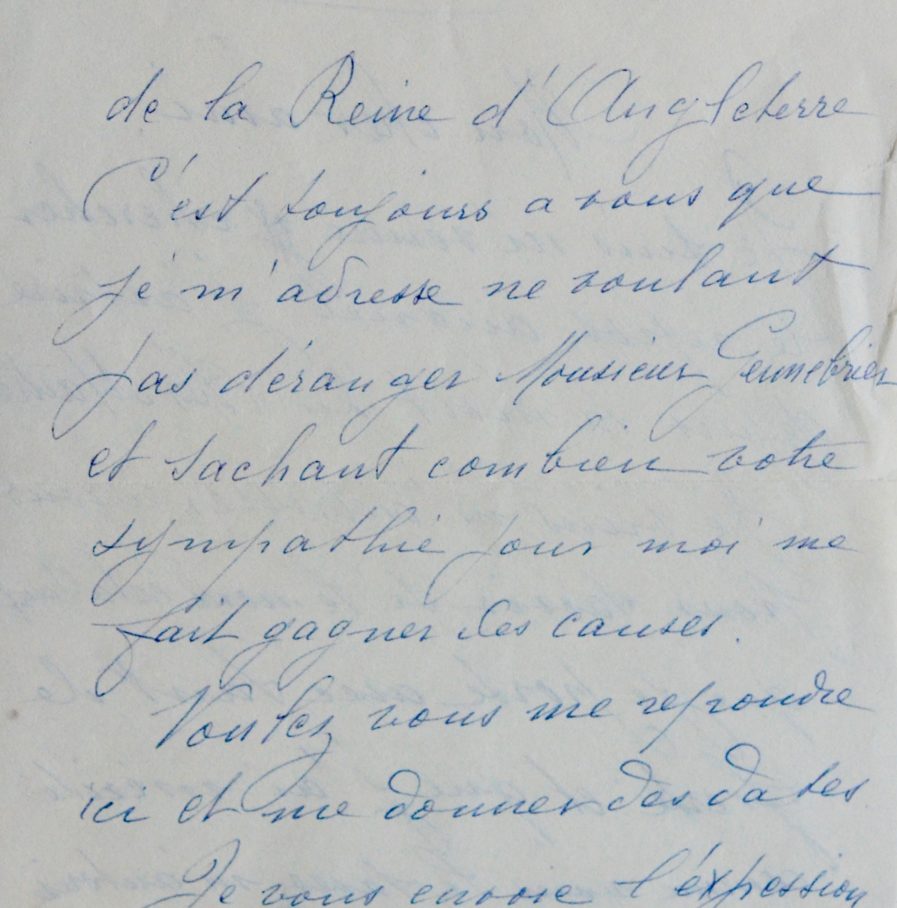 de la Reine d'Angleterre
C'est toujours a vous que
je m'adresse ne voulant
pas déranger Monsieur
et sachant combien votre
sympathie pour moi me
fait gagner des causes.
Voulez vous me repondre
ici et me donner des dates
Je vous envoie l'éxpession